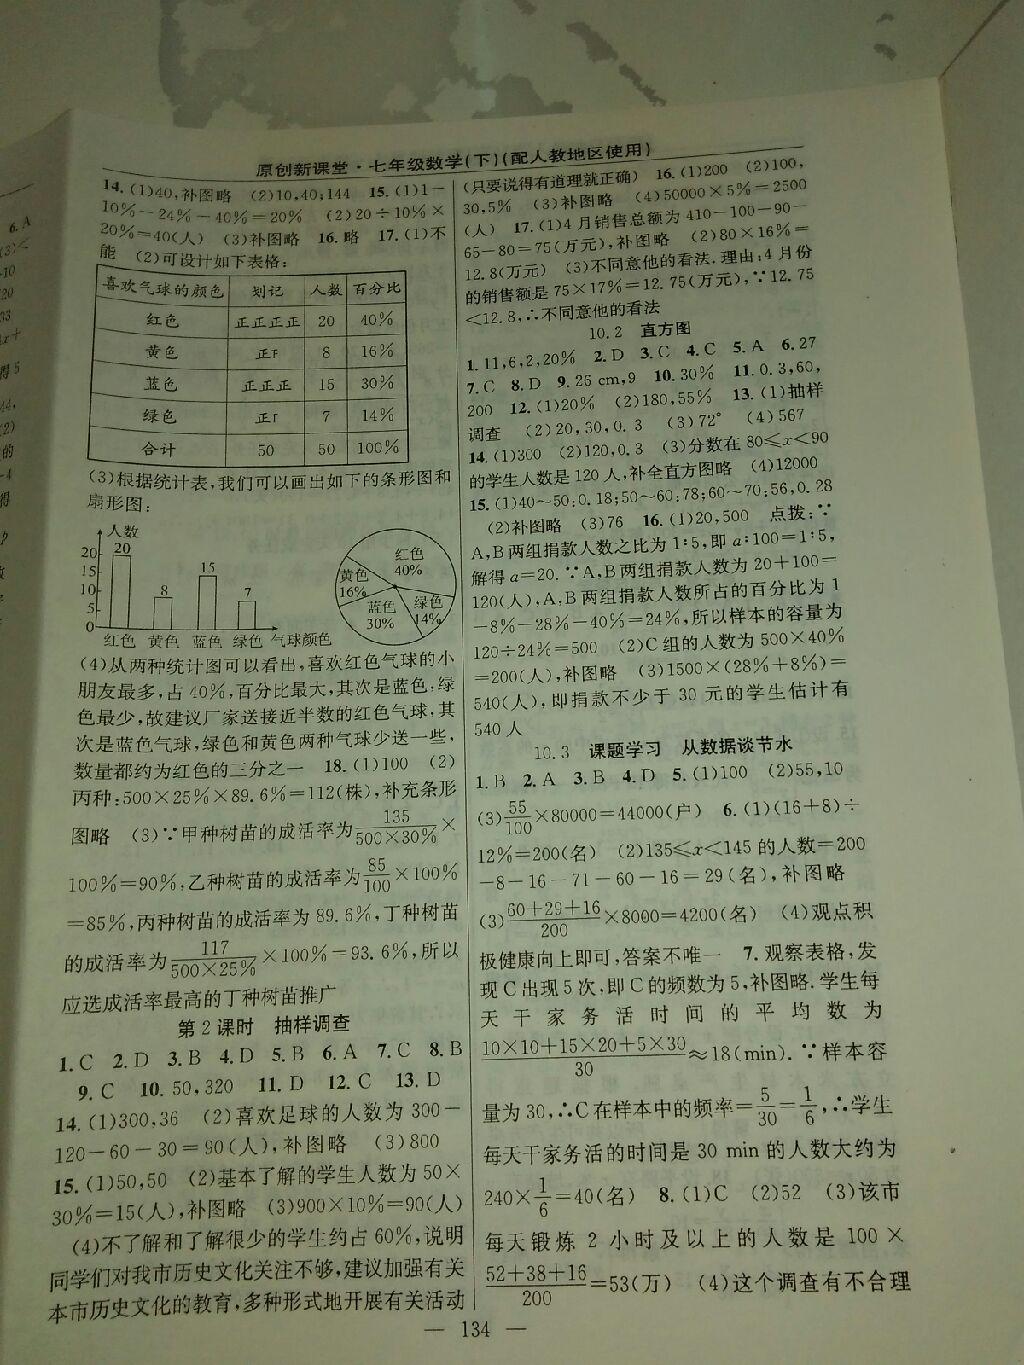 原创新课堂·七年级数学(下)(配人教地区使用)
14.(1)40,补图略 (2)10,40;144 15.(1)1-
10%-24%-40%=20% (2)20÷10%×
20%=40(人) (3)补图略 16.略 17.(1)不
能 (2)可设计如下表格:
喜欢气球的颜色 划记 人数 百分比
红色 正正正正 20 40%
黄色 正 8 16%
蓝色 正正正 15 30%
绿色 正 7 14%
合计 50 50 100%
(3)根据统计表,我们可以画出如下的条形图和
扇形图:
人数
20
15
10
5
0
20
8
15
7
红色 黄色 蓝色 绿色 气球颜色
红色
40%
黄色
16%
蓝色
30%
绿色
14%
(4)从两种统计图可以看出,喜欢红色气球的小
朋友最多,占40%,百分比最大,其次是蓝色,绿
色最少,故建议厂家送接近半数的红色气球,其
次是蓝色气球,绿色和黄色两种气球少送一些,
数量都约为红色的三分之一 18.(1)100 (2)
丙种:500×25%×89.6%=112(株),补充条形
图略 (3)∵甲种树苗的成活率为135/(500×30%)×
100%=90%,乙种树苗的成活率为85/100×100%
=85%,丙种树苗的成活率为89.6%,丁种树苗
的成活率为117/(500×25%)×100%=93.6%,所以
应选成活率最高的丁种树苗推广
第2课时 抽样调查
1.C 2.D 3.B 4.D 5.B 6.A 7.C 8.B
9.C 10.50,320 11.D 12.C 13.D
14.(1)300,36 (2)喜欢足球的人数为300-
120-60-30=90(人),补图略 (3)800
15.(1)50,50 (2)基本了解的学生人数为50×
30%=15(人),补图略 (3)900×10%=90(人)
(4)不了解和了解很少的学生约占60%,说明
同学们对我市历史文化关注不够,建议加强有关
本市历史文化的教育,多种形式地开展有关活动
(只要说得有道理就正确) 16.(1)200 (2)100,
30,5% (3)补图略 (4)50000×5%=2500
(人) 17.(1)4月销售总额为410-100-90-
65-80=75(万元),补图略 (2)80×16%=
12.8(万元) (3)不同意他的看法.理由:4月份
的销售额是75×17%=12.75(万元),∵12.75
<12.8,∴不同意他的看法
10.2 直方图
1.11,6,2,20% 2.D 3.C 4.C 5.A 6.27
7.C 8.D 9.25 cm,9 10.30% 11.0.3,60,
200 12.(1)20% (2)180,55% 13.(1)抽样
调查 (2)20,30,0.3 (3)72° (4)567
14.(1)300 (2)120,0.3 (3)分数在80≤x<90
的学生人数是120人,补全直方图略 (4)12000
15.(1)40~50:0.18;50~60:78;60~70:56,0.28
(2)补图略 (3)76 16.(1)20,500 点拨:∵
A,B两组捐款人数之比为1∶5,即a∶100=1∶5,
解得a=20.∵A,B两组捐款人数为20+100=
120(人),A,B两组捐款人数所占的百分比为1
-8%-28%-40%=24%,所以样本的容量为
120÷24%=500 (2)C组的人数为500×40%
=200(人),补图略 (3)1500×(28%+8%)=
540(人),即捐款不少于30元的学生估计有
540人
10.3 课题学习 从数据谈节水
1.B 2.A 3.B 4.D 5.(1)100 (2)55,10
(3)55/100×80000=44000(户) 6.(1)(16+8)÷
12%=200(名) (2)135≤x<145的人数=200
-8-16-71-60-16=29(名),补图略
(3)(60+29+16)/200×8000=4200(名) (4)观点积
极健康向上即可,答案不唯一 7.观察表格,发
现C出现5次,即C的频数为5,补图略.学生每
天干家务活时间的平均数为
(10×10+15×20+5×30)/30≈18(min).∵样本容
量为30,∴C在样本中的频率=5/30=1/6,∴学生
每天干家务活的时间是30 min的人数大约为
240×1/6=40(名) 8.(1)C (2)52 (3)该市
每天锻炼2小时及以上的人数是100×
(52+38+16)/200=53(万) (4)这个调查有不合理
— 134 —